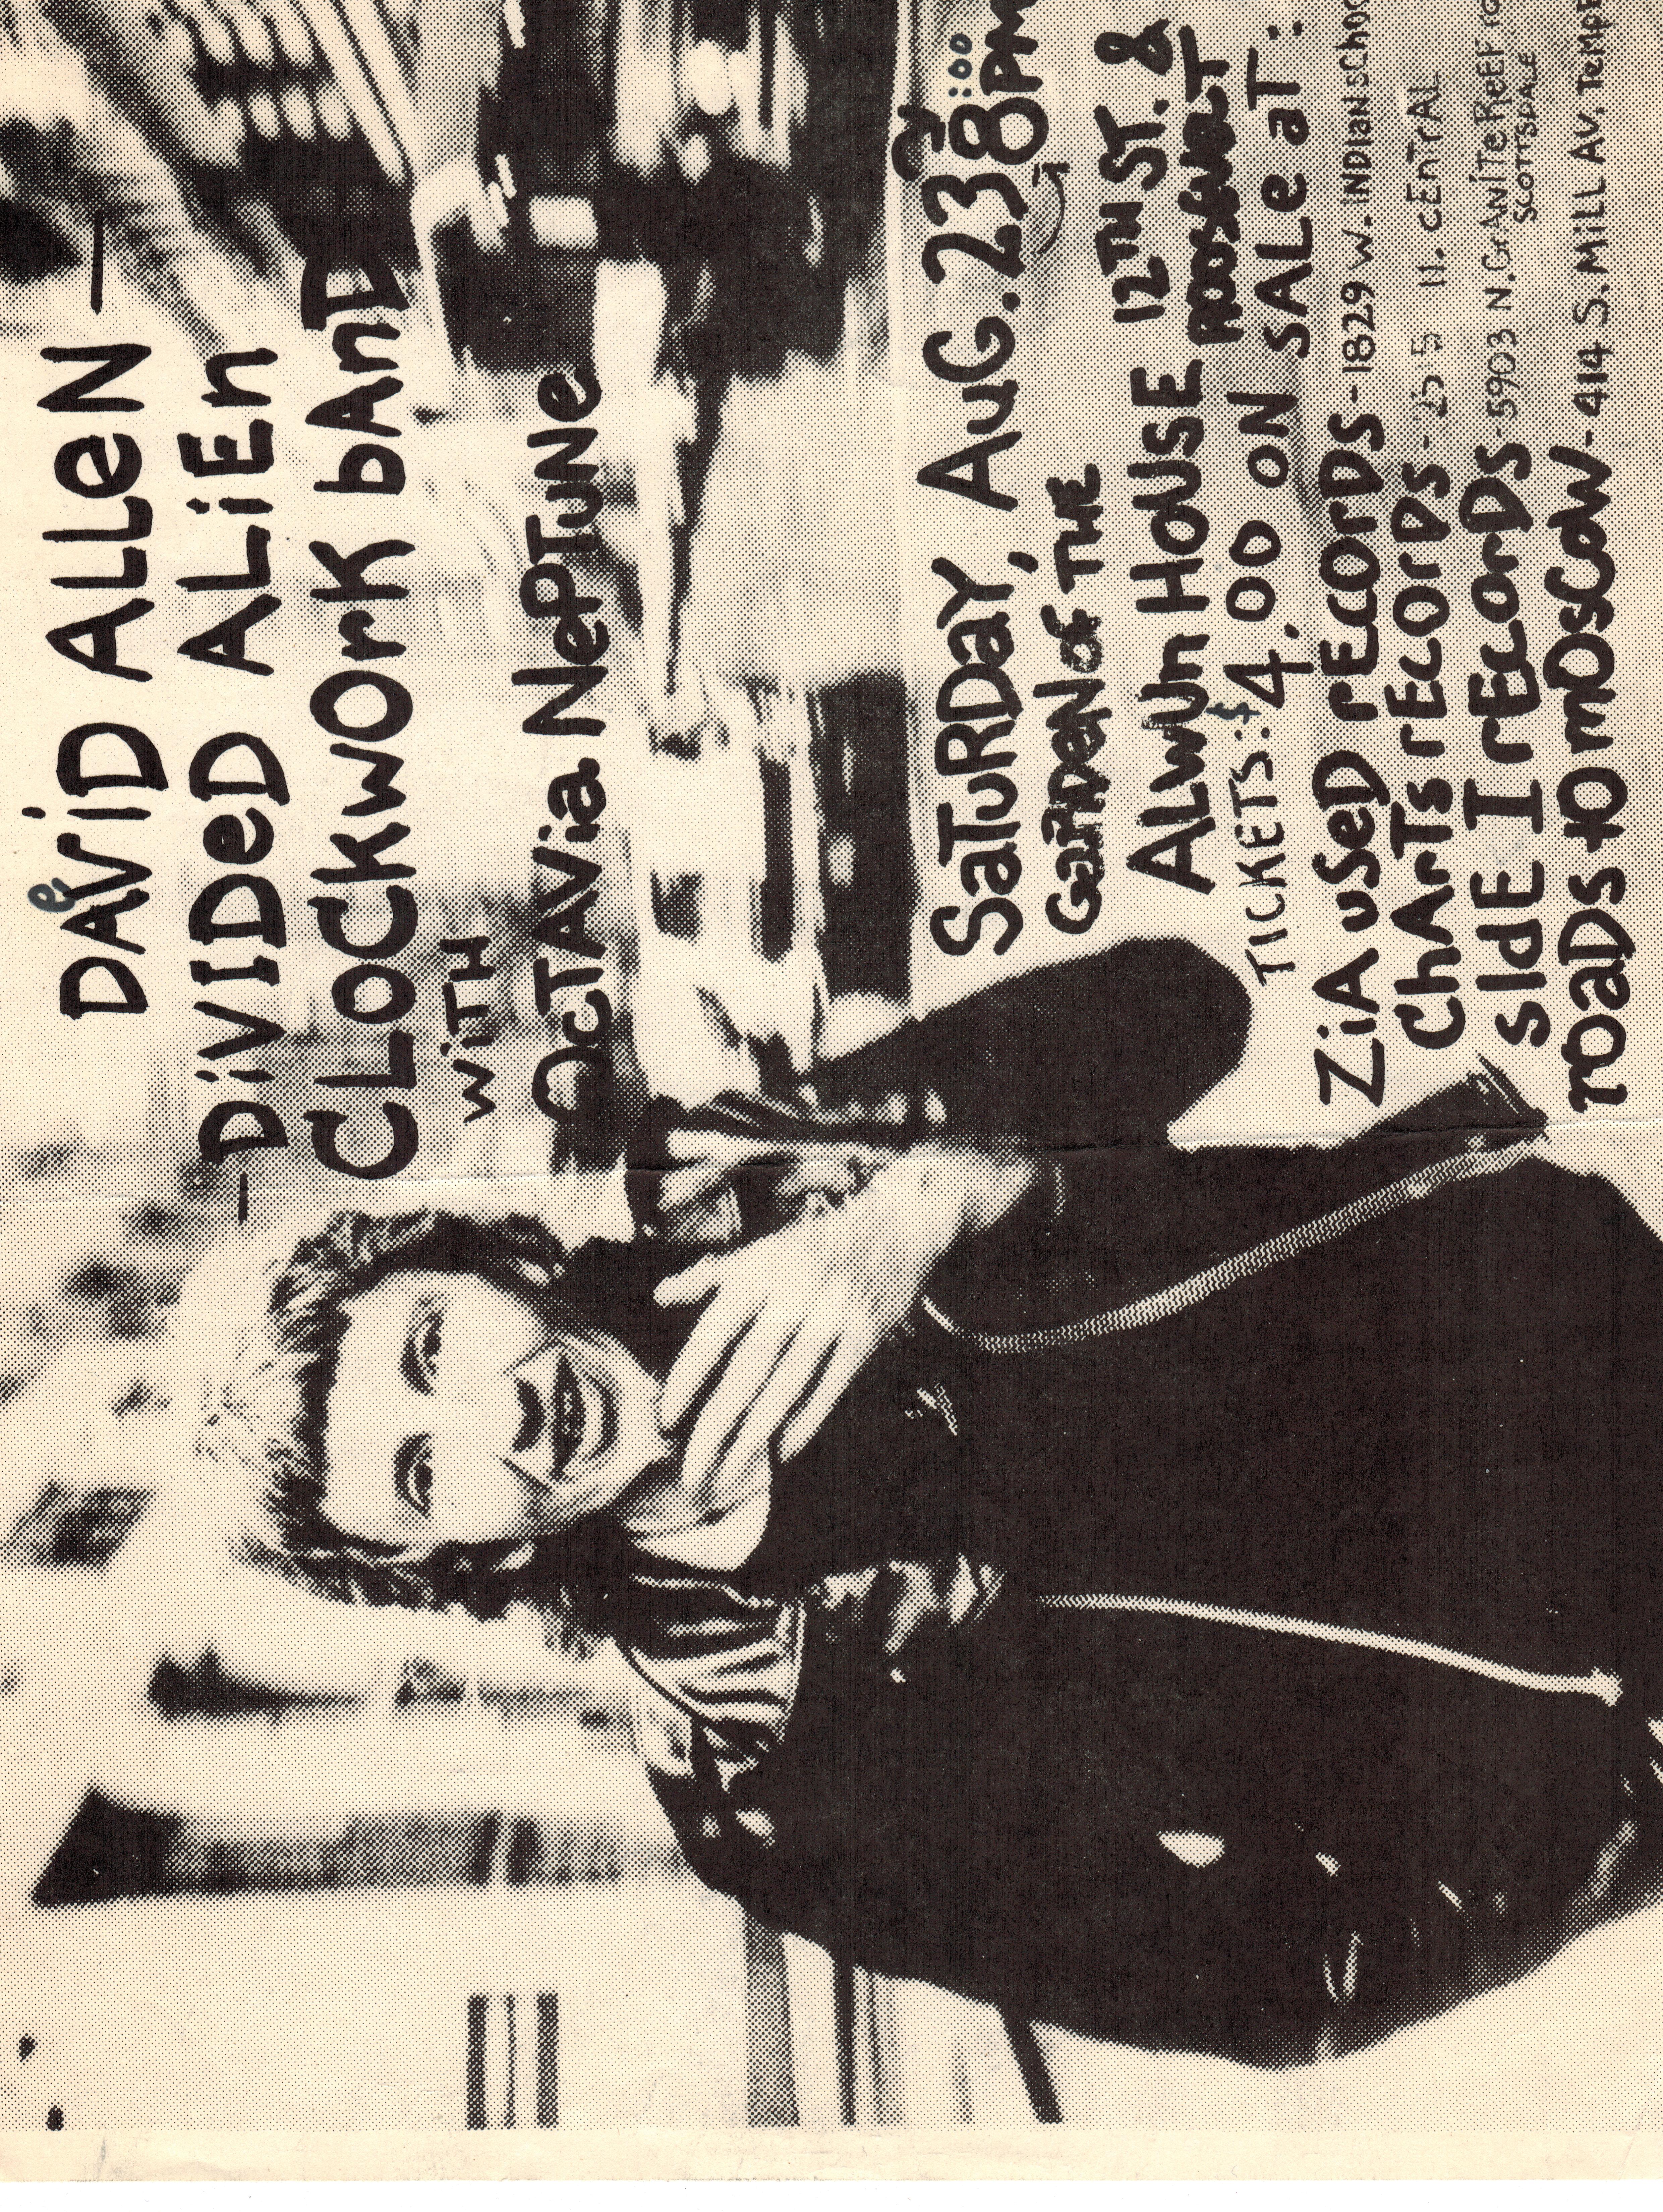 e
DAViD ALLeN —
— DiVIDeD ALiEn
CLOCKwOrK bAnD
wiTH
OcTAVia NePTUNe
SaTuRDaY, AuG. 23RD 8:00PM
GarDEN of THE
ALWUn HOUSE 12TH ST. &
ROOSEVELT
TICKETS: $4.00 ON SALe aT:
ZiA uSeD rEcOrDS - 1829 W. INDIANSChOO
ChArTS rECOrDS - CEnTrAL
SIdE I rECOrDS - 5903 N. GrANiTe REEF ro
SCOTTSDALE
rOaDS tO mOScOW - 414 S. MiLL AV. TeMPE